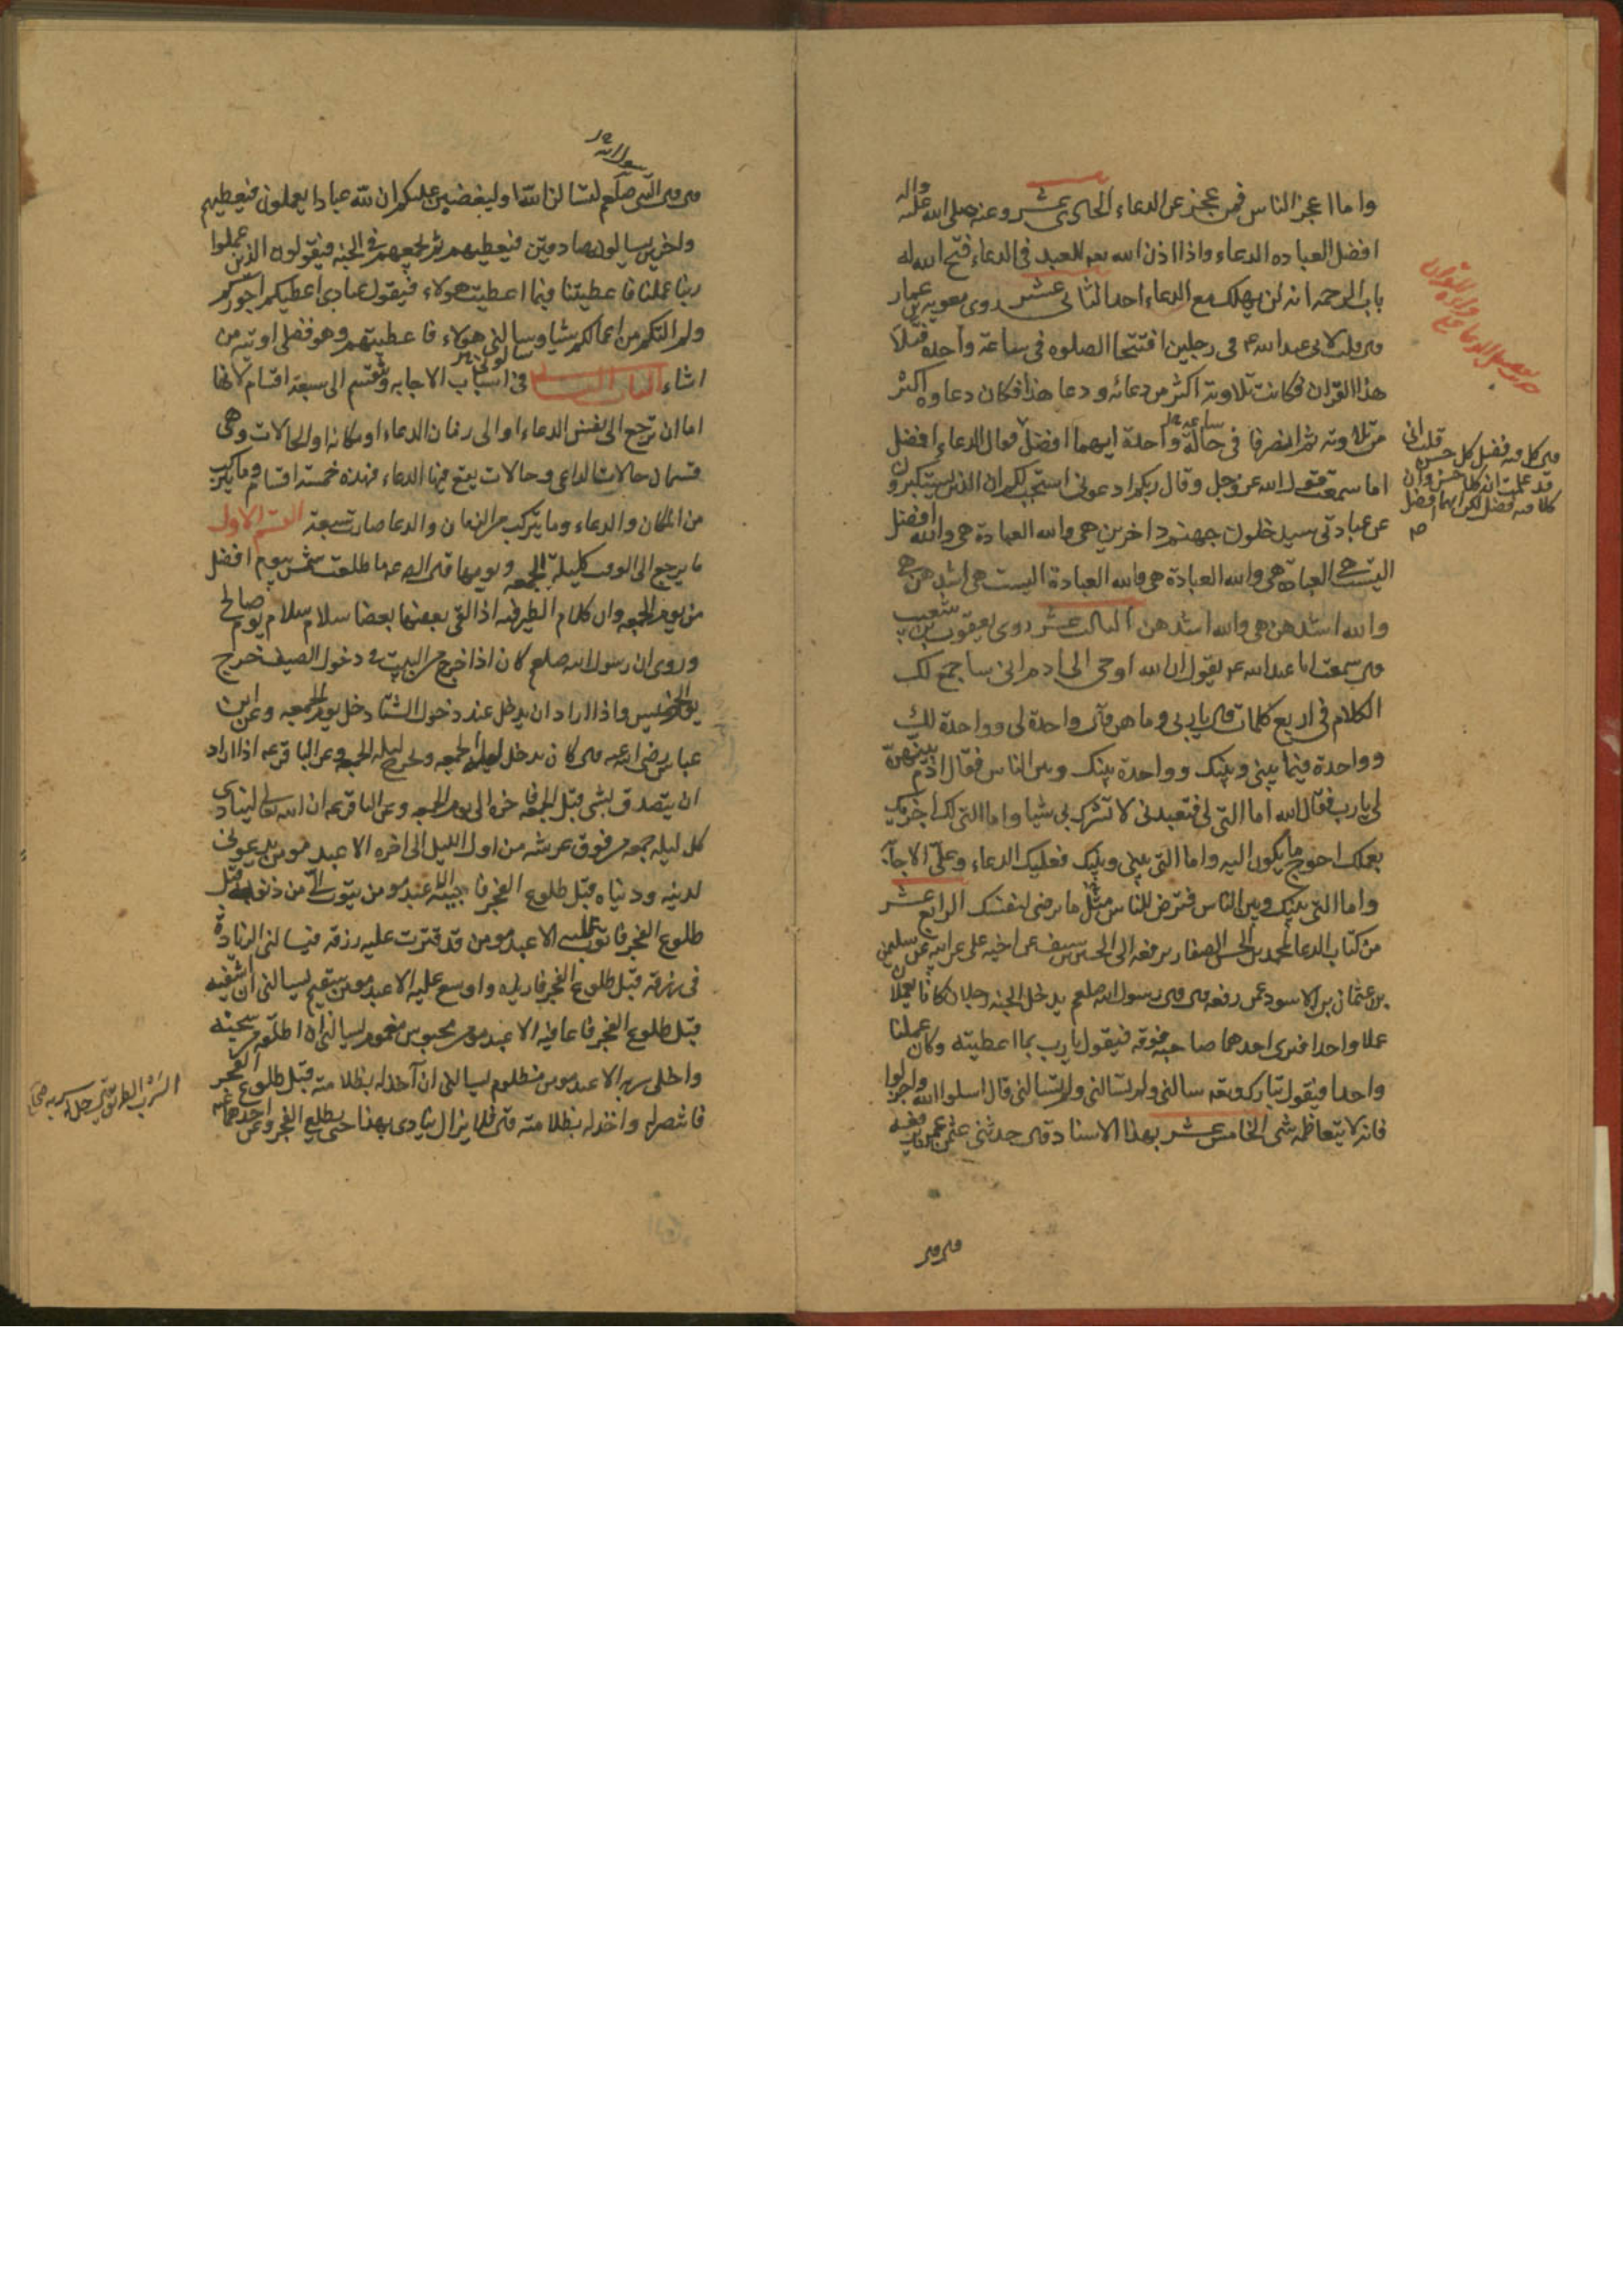 واما اعجز الناس فمن عجز عن الدعاء الحادى عشر وعنه صلى الله عليه واله
افضل العباده الدعاء واذا اذن الله للعبد فى الدعاء فتح الله له
باب الرحمه انه لن يهلك مع الدعاء احد الثانى عشر روى معويه بن عمار
قال قلت لابى عبد الله ع فى رجلين افتتحا الصلوه فى ساعة واحدة فتلا
هذا القران فكانت تلاوته اكثر من دعائه ودعا هذا فكان دعاوه اكثر
من تلاوته ثم انصرفا فى ساعة واحدة ايهما افضل فقال الدعاء افضل
اما سمعت قول الله عز وجل وقال ربكم ادعونى استجب لكم ان الذين يستكبرون
عن عبادتى سيدخلون جهنم داخرين هى والله العبادة هى والله افضل
اليست هى العبادة هى والله العبادة هى والله العبادة اليست هى اشدهن هى
والله اشدهن هى والله اشدهن الثالث عشر روى يعقوب بن شعيب
قال سمعت ابا عبد الله ع يقول ان الله اوحى الى ادم انى ساجمع لك
الكلام فى اربع كلمات قال يا رب وما هن قال واحدة لى وواحدة لك
وواحدة فيما بينى وبينك وواحدة بينك وبين الناس فقال ادم بينهن
لى يا رب فقال الله اما التى لى فتعبدنى لا تشرك بى شيا واما التى لك اجزيك
بعملك احوج ما يكون اليه واما التى بينى وبينك فعليك الدعاء وعلى الاجابة
واما التى بينك وبين الناس فترضى للناس مثل ما ترضى لنفسك الرابع عشر
من كتاب الدعا لمحمد بن الحسن الصفار يرفعه الى الحسين بن سيف عن اخيه على عن ابيه عن سليمن
بن عثمان بن الاسود عمن رفعه قال قال رسول الله صلعم يدخل الجنه رجلان كانا يعملان
عملا واحدا فيرى احدهما صاحبه فوقه فيقول يا رب بما اعطيته وكان عملنا
واحدا فيقول تبارك وتعه سالنى ولم تسالنى قال اسلوا الله واجزلوا
فانه لا يتعاظمه شى الخامس عشر بهذا الاسناد قال حدثنى
قال قال
قال كل فيه فضل كل حسن قلت انى
قد علمت ان كلا حسن وان
كلا فيه فضل لكن ايهما افضل
رسول الله
قال قال النبى صلعم لتسالن الله او ليغضبن عليكم ان لله عبادا يعملون فيعطيهم
واخرين يسالون صادقين فيعطيهم ثم يجمعهم فى الجنه فيقول الذين عملوا
ربنا عملنا فاعطيتنا فبما اعطيت هولاء فيقول عبادى اعطيكم اجوركم
ولم التكم من اعمالكم شيا وسالنى هولاء فاعطيتهم وهو فضلى اوتيه من
اشاء الباب الثانى فى اسباب الاجابه وتنقسم الى سبعة اقسام لانها
اما ان ترجع الى نفس الدعاء او الى زمان الدعاء او مكانه او الحالات وهى
قسمان حالات الداعى وحالات يقع فيها الدعاء فهذه خمسة اقسام وما يتركب
من المكان والدعاء وما يتركب من الزمان والدعا صارت سبعة القسم الاول
ما يرجع الى الوقت كليلة الجمعه ويومها قال ع ما طلعت شمس بيوم افضل
من يوم الجمعه وان كلام الطير فيه اذا لقى بعضها بعضا سلام سلام يوم صالح
وروى ان رسول الله صلعم كان اذا خرج من البيت فى دخول الصيف خرج
يوم الخميس واذا اراد ان يدخل عند دخول الشتا دخل يوم الجمعه وعن ابن
عباس رضى الله عنه قال كان يدخل ليلة الجمعه ويخرج ليله الجمعه وعن الباقر ع اذا اراد
ان يتصدق بشى قبل الجمعه اخره الى يوم الجمعه وعن الباقر ع ان الله تعالى لينادى
كل ليله جمعه من فوق عرشه من اول الليل الى اخره الا عبد مومن يدعونى
لدينه ودنياه قبل طلوع الفجر فاجيبه الا عبد مومن يتوب الى من ذنوبه قبل
طلوع الفجر فاتوب عليه الا عبد مومن قد قترت عليه رزقه فيسالنى الزيادة
فى رزقه قبل طلوع الفجر فازيده واوسع عليه الا عبد مومن سقيم يسالنى ان اشفيه
قبل طلوع الفجر فاعافيه الا عبد مومن محبوس مغموم يسالنى ان اطلقه من سجنه
واخلى سربه الا عبد مومن مظلوم يسالنى ان آخذ له بظلامته قبل طلوع الفجر
فانتصر له واخذ له بظلامته قال فلا يزال ينادى بهذا حتى يطلع الفجر وعن احدهما
السرب الطريق